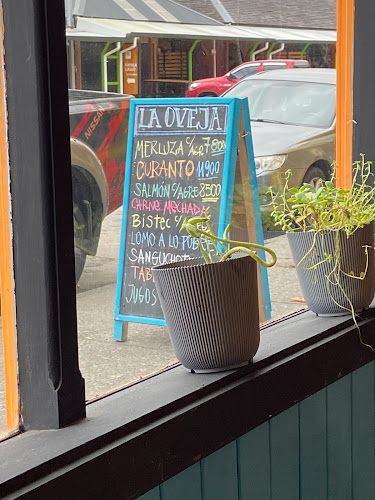 LA OVEJA
MERLUZA C/AGR 7.800
CURANTO 11.900
SALMÓN C/AGRE 8.500
CARNE MECHADA
BISTEC C/A
LOMO A LO POBRE
SANGUCHO
TAB
JUGOS
NISSAN